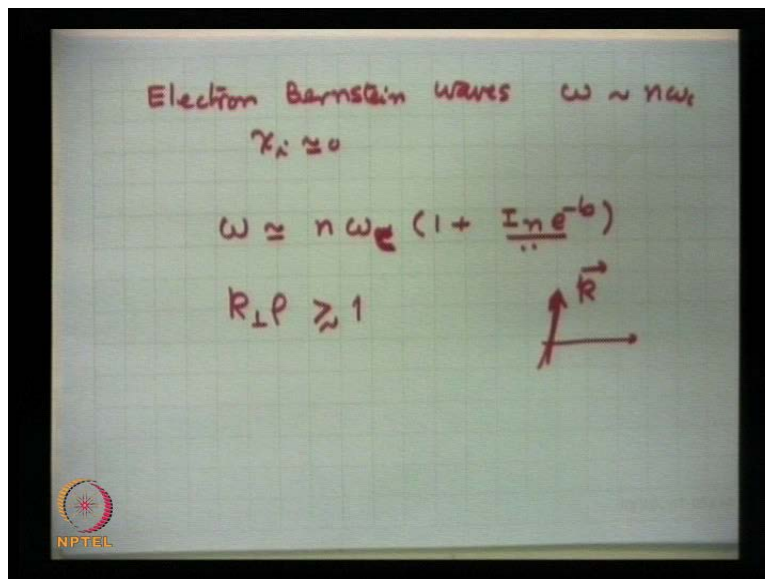 Electron Bernstein waves ω ~ nωc
χi ≃ 0
ω ≃ n ωc (1 + In e^-b)
k⊥ρ ≳ 1
k⃗
NPTEL